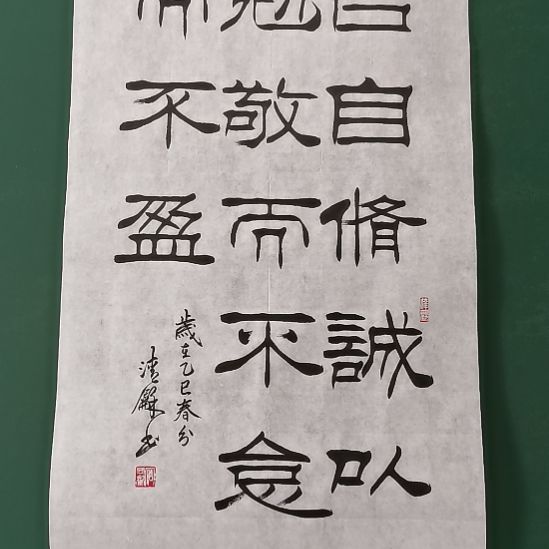 自脩誠以
勉敬而不怠
而不盈
歲在乙巳春分
清 书